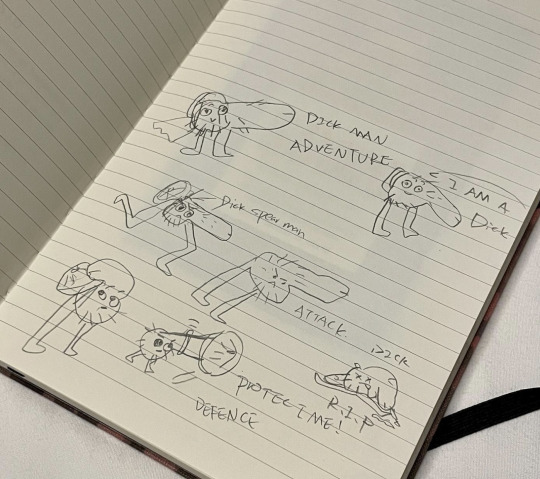 DICK MAN
ADVENTURE
< I AM A
Dick
Dick spear man
ATTACK.
DICK
R.I.P
PROTECT ME!
DEFENCE